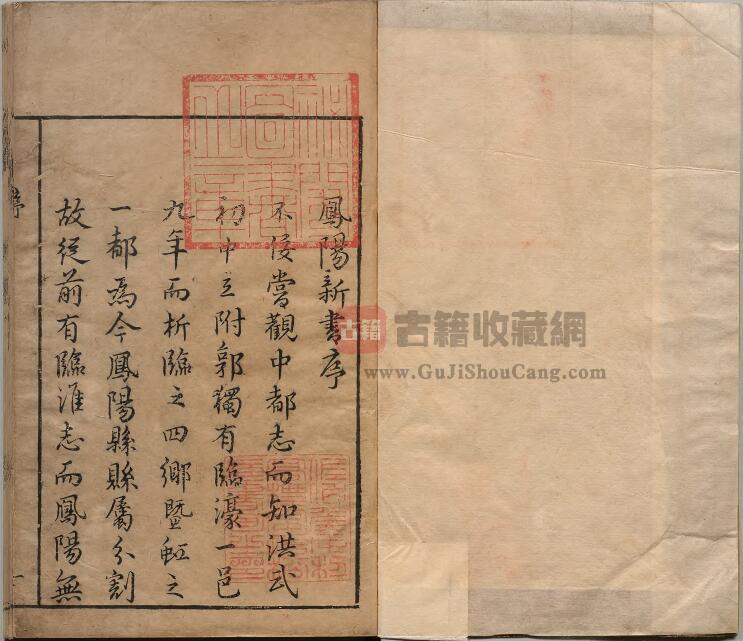 鳳陽新書序
不佞嘗觀中都志而知洪武
初中立附郭獨有臨濠一邑
九年而析臨之四鄉暨虹之
一都為今鳳陽縣縣屬分割
故從前有臨淮志而鳳陽無
序
一
古籍
古籍收藏網
www.GuJiShouCang.com